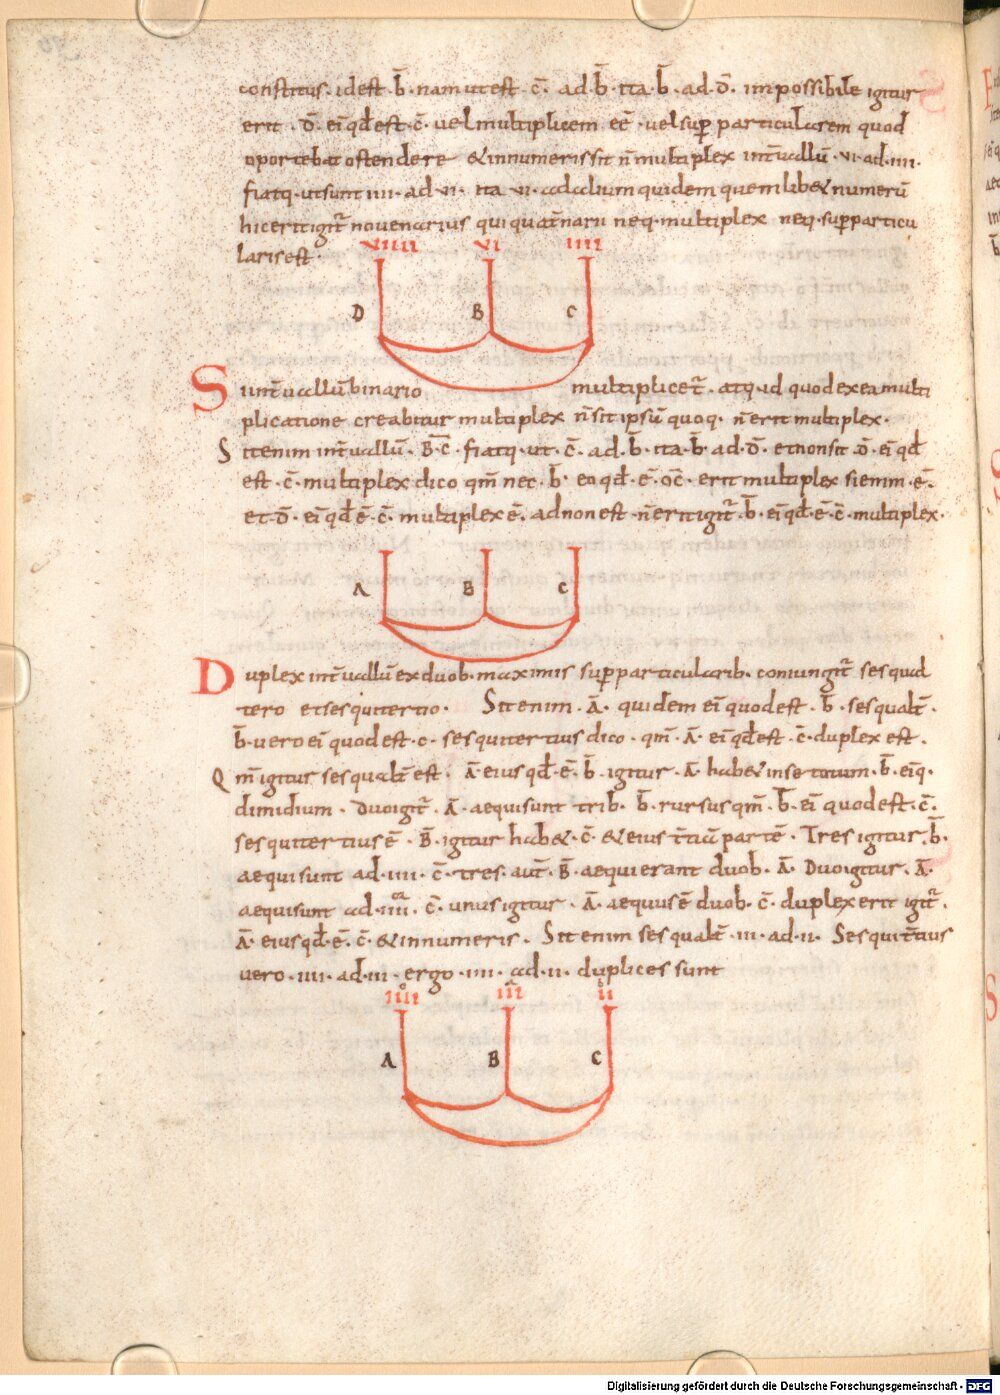 constitus. id est. b̄. nam ut est. c̄. ad. b̄. ita. b̄. ad. d̄. impossibile igitur
erit. d̄. ei᷒ qđ est. c̄. vel multiplicem. eē. vel sup̄particularem quod
oportebat ostendere & in numeris sit n̄ multiplex int̄uallū. vi. ad. iiii.
fiatq. ut sunt iiii. ad vi. ita vi. ad alium quidem quemlib& numerū
hic erit igit̄ novenarius qui quat̄narii neq. multiplex neq. sup̄particu
laris est.
VIIII VI IIII
D B C
Si int̄uallū binario multiplicet̄. atq. id quod ex ea multi
plicatione creabitur multiplex n̄ sit ipsū quoq. n̄ erit multiplex.
Sit enim int̄uallū. B̄. C̄. fiatq. ut. c̄. ad. b̄. ita. b̄. ad. d̄. et non sit. d̄. ei᷒ qđ
est. c̄. multiplex dico qm̄ nec. b̄. eo qđ. ē. c̄. erit multiplex si enim. ē.
et. d̄. ei᷒ qđ ē. c̄. multiplex ē. ad non est. n̄ erit igit̄. b̄. ei᷒ qđ. ē. c̄. multiplex.
A B C
Duplex int̄uallū ex duob. maximis sup̄particularib. coniungit̄ sesqual
tero et sesquitertio. Sit enim. ā. quidem ei᷒ quod est. b̄. sesqualt̄.
b̄. vero ei᷒ quod est. c. sesquitertius dico. qm̄. ā. ei᷒ qđ est. c̄. duplex est.
Qm̄ igitur sesqualt̄ est. ā. eius qđ. ē. b̄. igitur. ā. hab& in se totum. b̄. ei᷒q.
dimidium. Duo igit̄. ā. aequi sunt trib. b̄. rursus qm̄. b̄. ei᷒ quod est. c̄.
sesquitertius ē. B̄. igitur hab&. c̄. & eius t̄tiā partē. Tres igitur. b̄.
aequi sunt ad. iiii. c̄. tres. aut̄. B̄. aequi erant duob. ā. Duo igitur. ā.
aequi sunt ad. iiii. c̄. unus igitur. ā. aequus ē duob. c̄. duplex erit igit̄.
ā. eius qđ. ē. c̄. & in numeris. Sit enim sesqualt̄. iii. ad. ii. Sesquit̄tius
vero. iiii. ad. iii. ergo. iiii. ad. ii. duplices sunt
IIII III II
A B C
Digitalisierung gefördert durch die Deutsche Forschungsgemeinschaft - DFG